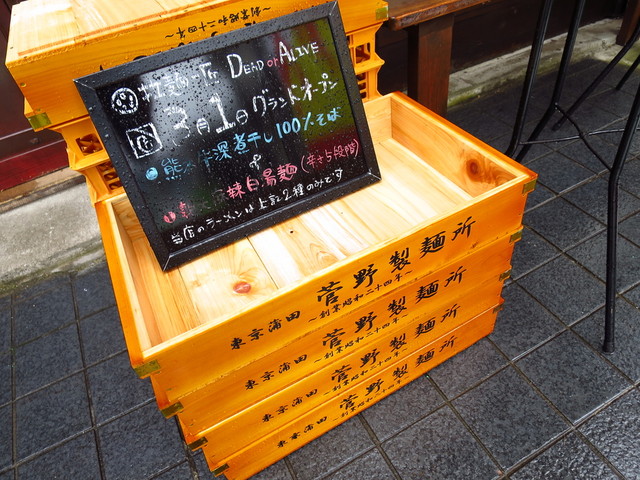 DEAD or ALIVE
3月1日 グランドオープン
煮干し100%そば
&
辣白湯麺(辛さ5段階)
当店のラーメンは上記2種のみです
東京蒲田 菅野製麺所
~創業昭和二十四年~
東京蒲田 菅野製麺所
~創業昭和二十四年~
東京蒲田 菅野製麺所
~創業昭和二十四年~
東京蒲田 菅野製麺所
~創業昭和二十四年~